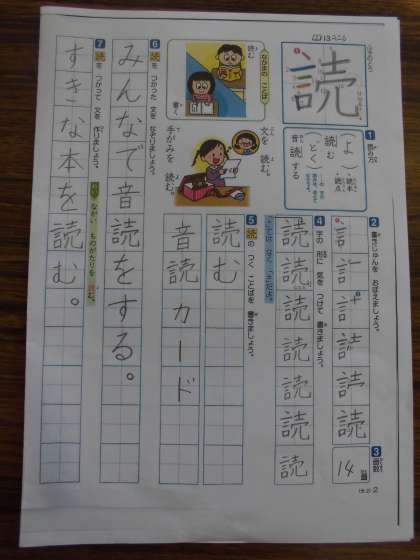 読
1 読の方
よむ
読む
（とく）
音読する
・読本
・読点
2 書きじゅんを おぼえましょう。
3 画数
14画
4 字の 形に 気を つけて 書きましょう。
読
読
読
読
読
読
読
なかまの ことば
読む
書く
文を 読む。
手がみを 読む。
5 読の つく ことばを 書きましょう。
読む
音読カード
6 読を つかった 文を なぞりましょう。
みんなで音読をする。
7 読を つかって 文を 作りましょう。
ながい ものがたりを 読む。
すきな本を読む。